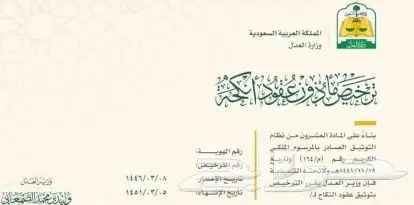 المملكة العربية السعودية
وزارة العدل
ترخيص مأذون عقود أنكحة
بناءً على المادة العشرون من نظام
التوثيق الصادر بالمرسوم الملكي
الكريم رقم (م/١٦٤) وتاريخ
١٤٤١/١١/١٩هـ ولائحته التنفيذية
فإن وزير العدل يقرر الترخيص
بتوثيق عقود النكاح لـ /
رقم الهوية:
رقم الترخيص:
تاريخ الإصدار: ١٤٤٦/٠٣/٠٨
تاريخ الإنتهاء: ١٤٥١/٠٣/٠٥
وزير العدل
وليد بن محمد الصمعاني